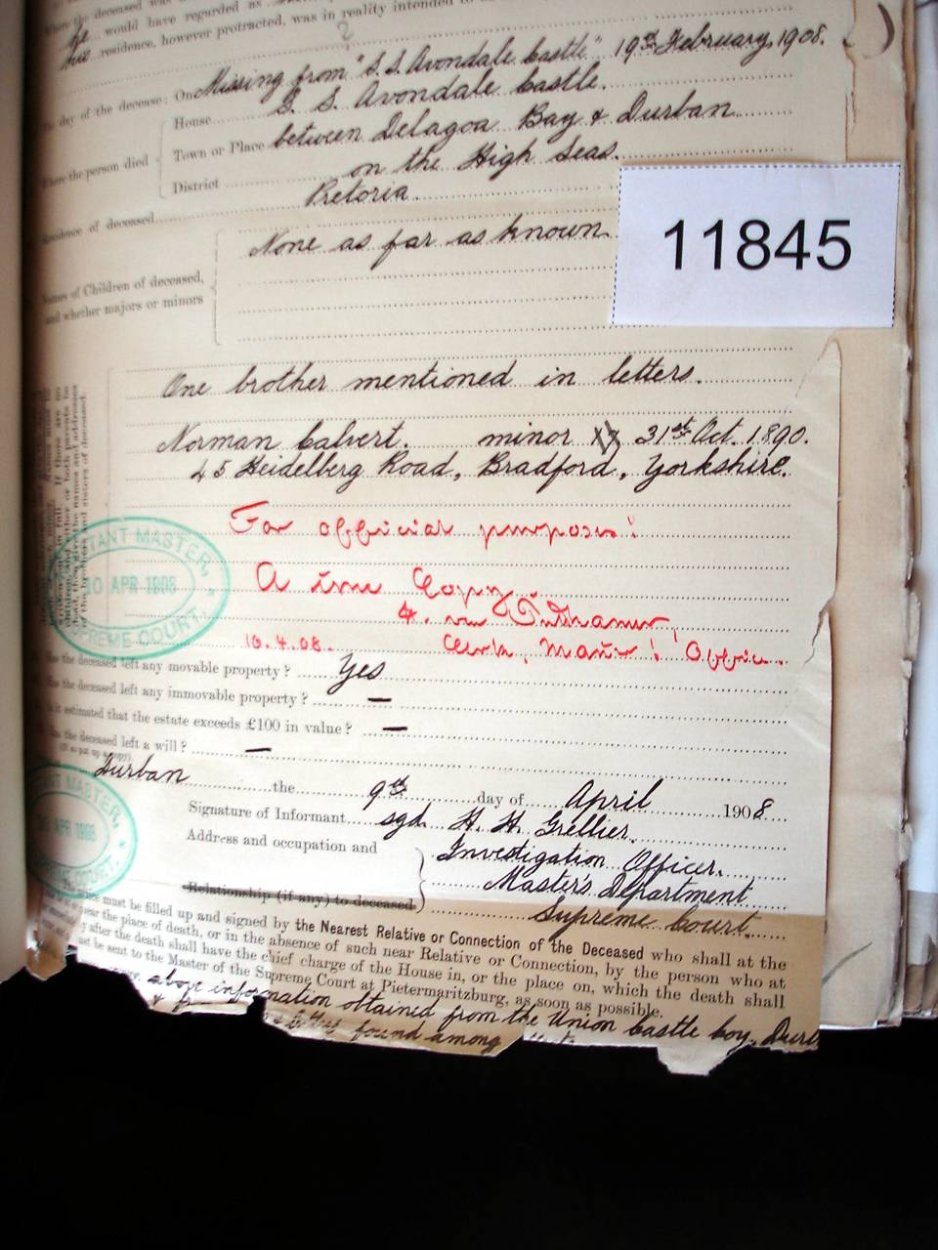 Where the deceased was
He would have regarded as
his residence, however protracted, was in reality intended to
?
The day of the decease: On Missing from "S.S. Avondale Castle" 19th February, 1908.
Where the person died
House S. S. Avondale Castle.
Town or Place between Delagoa Bay & Durban
District on the High Seas.
Residence of deceased Pretoria.
11845
Names of Children of deceased, and whether majors or minors
None as far as known
One brother mentioned in letters.
Norman Calvert. minor 31st Oct. 1890.
45 Heidelberg Road, Bradford, Yorkshire.
For official purposes!
A true Copy
10.4.08. Clerk, Master's Office.
ASSISTANT MASTER,
10 APR 1908
SUPREME COURT
Has the deceased left any movable property? Yes
Has the deceased left any immovable property? —
Is it estimated that the estate exceeds £100 in value? —
Has the deceased left a will? —
Durban the 9th day of April 1908
Signature of Informant sgd. H. H. Grellier.
Address and occupation and
Investigation Officer.
Master's Department
Relationship (if any) to deceased
Supreme Court.
MASTER,
APR 1908
SUPREME COURT
must be filled up and signed by the Nearest Relative or Connection of the Deceased who shall at the
near the place of death, or in the absence of such near Relative or Connection, by the person who at
after the death shall have the chief charge of the House in, or the place on, which the death shall
be sent to the Master of the Supreme Court at Pietermaritzburg, as soon as possible.
above information obtained from the Union Castle Coy. Durb
& letters found among